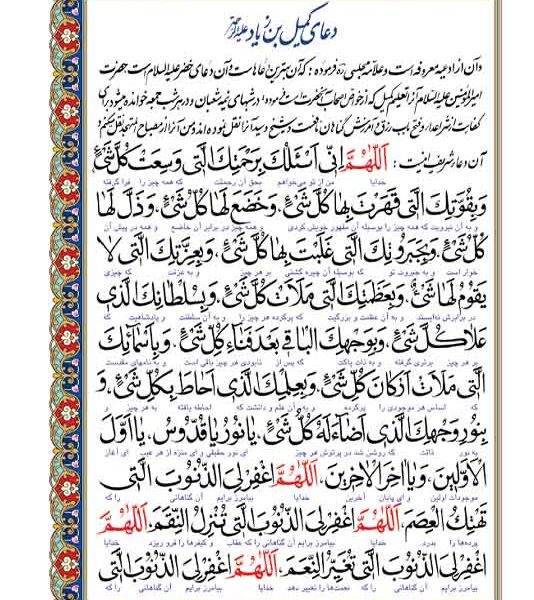 دعای کمیل بن زیاد علیه الرحمه
و آن از ادعیه معروفه است و علامه مجلسی ره فرموده : که آن بهترین دعاها است و آن دعای خضر علیه السلام است حضرت
امیرالمؤمنین علیه السلام آنرا تعلیم کمیل که از خواص اصحاب آنحضرت است فرموده در شبهای نیمه شعبان و در هر شب جمعه خوانده میشود برای
کفایت از شر اعداء و فتح باب رزق و آمرزش گناهان نافعست و شیخ و سید آنرا نقل نموده اند و من آنرا از مصباح المتهجد نقل میکنم و
آن دعا شریف اینست : اَللّهُمَّ اِنّی اَسْئَلُکَ بِرَحْمَتِکَ الَّتی وَسِعَتْ کُلَّ شَیْئٍ
خدایا من از تو می‌خواهم بحق آن رحمتت که همه چیز را فرا گرفته
وَ بِقُوَّتِکَ الَّتی قَهَرْتَ بِها کُلَّ شَیْئٍ، وَ خَضَعَ لَها کُلُّ شَیْئٍ، وَ ذَلَّ لَها
و به آن نیرویت که همه چیز را بوسیله آن مقهور خویش کردی و همه چیز در برابر آن خاضع و همه در پیش آن
کُلُّ شَیْئٍ، وَ بِجَبَرُوتِکَ الَّتی غَلَبْتَ بِها کُلَّ شَیْئٍ، وَ بِعِزَّتِکَ الَّتی لا
خوار است و به جبروت تو که بوسیله آن چیره گشتی بر هر چیز و به عزتت که چیزی
یَقُومُ لَها شَیْئٌ، وَ بِعَظَمَتِکَ الَّتی مَلَاَتْ کُلَّ شَیْئٍ، وَ بِسُلْطانِکَ الَّذی
در برابرش نه‌ایستد و به آن عظمت و بزرگیت که پرکرده هر چیز را و به آن سلطنت و پادشاهیت که
عَلا کُلَّ شَیْئٍ، وَ بِوَجْهِکَ الْباقی بَعْدَ فَناءِ کُلِّ شَیْئٍ، وَ بِاَسْمائِکَ
بر هر چیز برتری گرفته و به ذات پاکت که پس از نابودی هر چیز باقی است و به نامهای مقدست
الَّتی مَلَاَتْ اَرْکانَ کُلِّ شَیْئٍ، وَ بِعِلْمِکَ الَّذی اَحاطَ بِکُلِّ شَیْئٍ، وَ
که اساس هر موجودی را پرکرده و به آن علم و دانشت که احاطه یافته به هر چیز و
بِنُورِ وَجْهِکَ الَّذی اَضاءَ لَهُ کُلُّ شَیْئٍ، یا نُورُ یا قُدُّوسُ، یا اَوَّلَ
به نور ذاتت که روشن شد در پرتوش هر چیز ای نور حقیقی و ای منزه از هر عیب ای آغاز
الْاَوَّلینَ، وَ یا اخِرَ الْاخِرینَ، اَللّهُمَّ اغْفِرْ لِیَ الذُّنُوبَ الَّتی
موجودات اولین و ای پایان آخرین خدایا بیامرز برایم آن گناهانی را که
تَهْتِکُ الْعِصَمَ، اَللّهُمَّ اغْفِرْ لِیَ الذُّنُوبَ الَّتی تُنْزِلُ النِّقَمَ، اَللّهُمَّ
پرده‌ها را بدرد خدایا بیامرز برایم آن گناهانی را که عقاب و کیفرها را فرو ریزد خدایا
اغْفِرْ لِیَ الذُّنُوبَ الَّتی تُغَیِّرُ النِّعَمَ، اَللّهُمَّ اغْفِرْ لِیَ الذُّنُوبَ الَّتی
بیامرز برایم آن گناهانی را که نعمت‌ها را تغییر دهد خدایا بیامرز برایم آن گناهانی را که